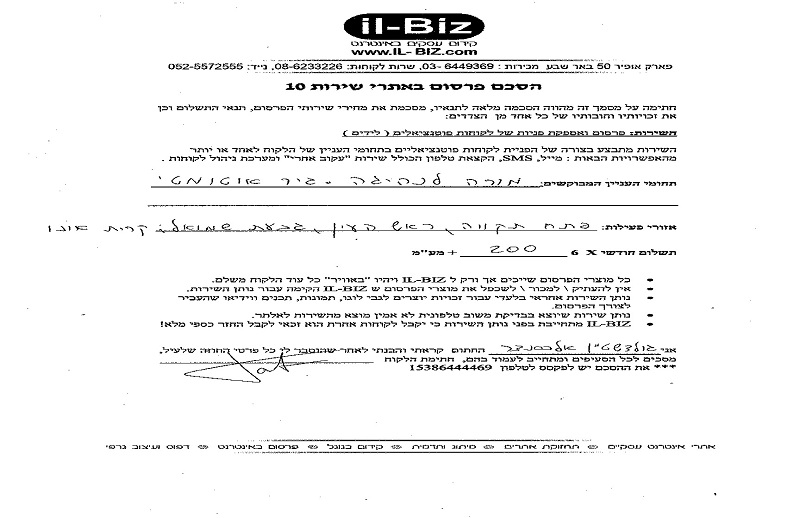 il-Biz
קידום עסקים באינטרנט
www.IL-BIZ.com
פארק אופיר 50 באר שבע מכירות : 03- 6449369, שרות לקוחות: 08-6233226, נייד: 052-5572555
הסכם פרסום באתרי שירות 10
חתימה על מסמך זה מהווה הסכמה מלאה לתנאיו, מסכמת את מחירי שירותי הפרסום, תנאי התשלום וכן
את זכויותיו וחובותיו של כל אחד מן הצדדים:
השירות: פרסום ואספקת פניות של לקוחות פוטנציאלים ( לידים )
השירות מתבצע בצורה של הפניית לקוחות פוטנציאליים בתחומי העניין של הלקוח לאחד או יותר
מהאפשרויות הבאות : מייל, SMS, הקצאת טלפון הכולל שירות "עקוב אחרי" ומערכת ניהול לקוחות .
תחומי העניין המבוקשים: מורה לנהיגה - גיר אוטומטי
אזורי פעילות: פתח תקווה, ראש העין, גבעת שמואל, קרית אונו
תשלום חודשי X 6 200 + מע"מ
כל מוצרי הפרסום שייכים אך ורק ל IL-BIZ ויהיו "באוויר" כל עוד הלקוח משלם.
אין להעתיק \ למכור \ לשכפל את מוצרי הפרסום ש IL-BIZ הקימה עבור נותן השירות.
נותן השירות אחראי בלעדי עבור זכויות יוצרים לגבי לוגו, תמונות, תכנים ווידיאו שהעביר
לצורך הפרסום.
נותן שירות שיוצא בבדיקת משוב טלפונית לא אמין מוצא מהשירות לאלתר.
IL-BIZ מתחייבת בפני נותן השירות כי יקבל לקוחות אחרת הוא זכאי לקבל החזר כספי מלא!
אני גולדשטיין אלכסנדר החתום קראתי והבנתי לאחר שהוסבר לי כל פרטי החוזה שלעיל,
מסכים לכל הסעיפים ומתחייב לעמוד בהם, חתימת הלקוח
*** את ההסכם יש לפקסס לטלפון 15386444469
אתרי אינטרנט עסקיים תחזוקת אתרים מיתוג ותדמית קידום בגוגל פרסום באינטרנט דפוס ועיצוב גרפי